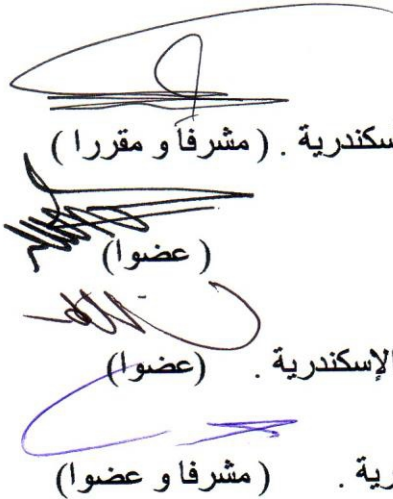 سكندرية . ( مشرفا و مقررا )
( عضوا )
الإسكندرية . (عضوا)
رية . ( مشرفا و عضوا)